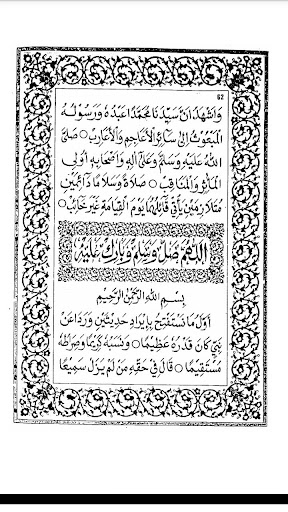 62
وَاَشْهَدُ اَنَّ سَيِّدَنَا مُحَمَّدًا عَبْدُهُ وَرَسُوْلُهُ
الْمَبْعُوْثُ اِلَى سَائِرِ الْاَعَاجِمِ وَالْاَعَارِبِ ○ صَلَّى
اللهُ عَلَيْهِ وَسَلَّمَ وَعَلَى اٰلِهِ وَاَصْحَابِهِ اُولِى
الْمَاٰثِرِ وَالْمَنَاقِبِ ○ صَلَاةً وَسَلَامًا دَائِمَيْنِ
مُتَلَازِمَيْنِ يَأْتِى قَائِلُهُمَا يَوْمَ الْقِيَامَةِ غَيْرَ خَائِبٍ ○
اَللّٰهُمَّ صَلِّ وَسَلِّمْ وَبَارِكْ عَلَيْهِ
بِسْمِ اللهِ الرَّحْمٰنِ الرَّحِيْمِ
اَوَّلُ مَا نَسْتَفْتِحُ بِاِيْرَادِ حَدِيْثَيْنِ وَرَدَا عَنْ
نَبِيٍّ كَانَ قَدْرُهُ عَظِيْمًا ○ وَنَسَبُهُ كَرِيْمًا وَصِرَاطُهُ
مُسْتَقِيْمًا ○ قَالَ فِى حَقِّهِ مَنْ لَمْ يَزَلْ سَمِيْعًا